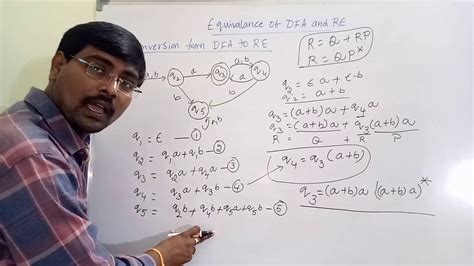 Equivalance of DFA and RE
version from DFA to RE
R = Q + RP
R = QP*
a,b
q2
a
q3
a,b
a
q4
b
b
q5
a,b
q1 = ε — ①
q2 = q1a + q1b — ②
q3 = q2a + q4a — ③
q4 = q3a + q3b — ④
q5 = q2b + q4b + q5a + q5b — ⑤
q2 = εa + ε·b
q2 = a + b
q3 = (a+b)a + q4a
q3 = (a+b)a + q3(a+b)a
R = Q + R P
q4 = q3(a+b)
q3 = (a+b)a ((a+b)a)*